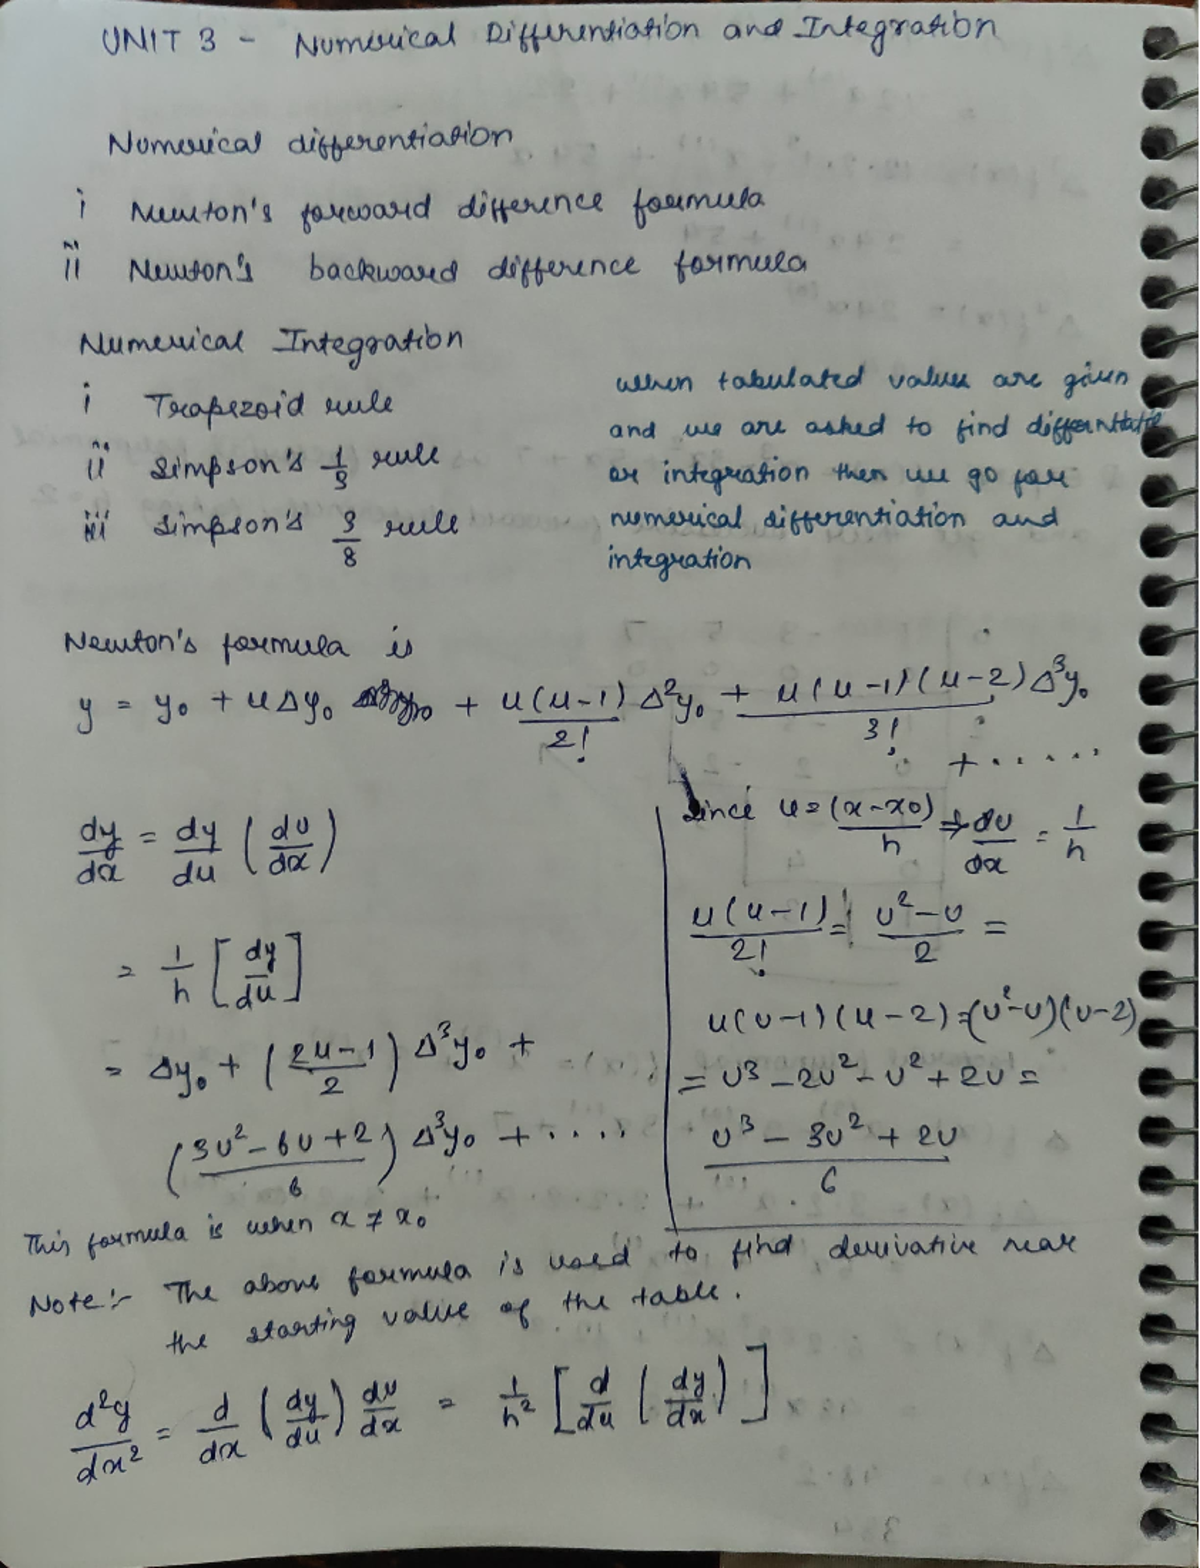 UNIT 3 - Numerical Differentiation and Integration
Numerical differentiation
i Newton's forward difference formula
ii Newton's backward difference formula
Numerical Integration
i Trapezoid rule
ii Simpson's 1/3 rule
iii Simpson's 3/8 rule
when tabulated values are given
and we are asked to find
or integration then we go for
numerical differentiation and
integration
Newton's formula is
y = y₀ + uΔy₀ + u(u-1)/2! Δ²y₀ + u(u-1)(u-2)/3! Δ³y₀
+ ......
dy/dx = dy/du (du/dx)
= 1/h [dy/du]
= Δy₀ + (2u-1/2) Δ³y₀ +
(3u²-6u+2/6) Δ³y₀ + ....
since u = (x-x₀)/h ⇒ du/dx = 1/h
u(u-1)/2! = u²-u/2 =
u(u-1)(u-2) = (u²-u)(u-2)
= u³-2u²-u²+2u =
u³-3u²+2u/6
This formula is when x ≠ x₀
Note:- The above formula is used to find derivative near
the starting value of the table.
d²y/dx² = d/dx (dy/du) du/dx = 1/h² [d/du (dy/dx)]